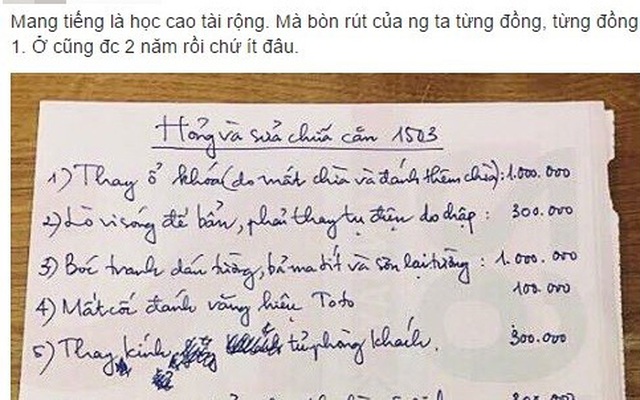 Mang tiếng là học cao tài rộng. Mà bòn rút của ng ta từng đồng, từng đồng
1. Ở cũng đc 2 năm rồi chứ ít đâu.
Hỏng và sửa chữa căn 1503
1) Thay ổ khóa (do mất chìa và đánh thêm chìa): 1.000.000
2) Lò vi sóng để bẩn, phải thay tụ điện do chập: 300.000
3) Bóc tranh dán tường, bả ma tít và sơn lại tường: 1.000.000
4) Mất cốc đánh răng hiệu Toto 100.000
5) Thay kính tủ phòng khách. 300.000